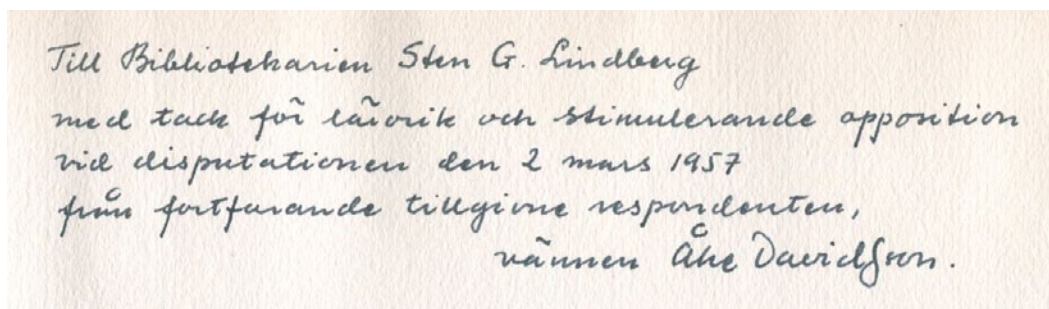 Till Bibliotekarien Sten G. Lindberg
med tack för lärorik och stimulerande opposition
vid disputationen den 2 mars 1957
från fortfarande tillgivne respondenten,
vännen Åke Davidsson.